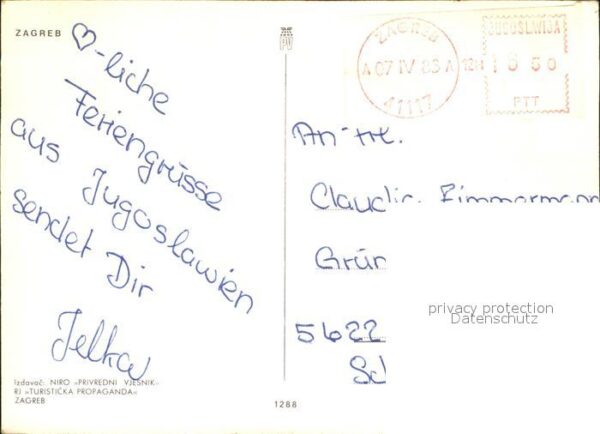 ZAGREB
♡-liche
Feriengrüsse
aus Jugoslawien
sendet Dir
Jelka
Izdavač: NIRO »PRIVREDNI VJESNIK«
RJ »TURISTIČKA PROPAGANDA«
ZAGREB
1288
ZAGREB
A 07 IV 83 A
11117
JUGOSLAVIJA
50
PTT
An
Zimmermann
5622
privacy protection
Datenschutz